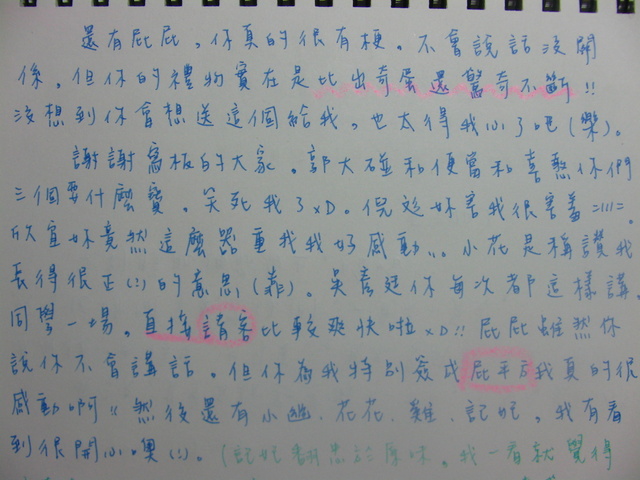 還有屁屁，你真的很有梗。不會說話沒關
係，但你的禮物實在是比出奇蛋還驚奇不斷!!
沒想到你會想送這個給我，也太得我心了吧(樂)。
謝謝寫板的大家。郭大碰和便當和喜憨你們
三個耍什麼寶。笑死我了xD。倪 妳害我很害羞=///=。
欣宜妳竟然這麼器重我我好感動... 小花是稱讚我
長得很正(:)的意思(靠)。吳 廷你每次都這樣講。
同學一場。直接請客比較爽快啦xD!! 屁屁雖然你
說你不會講話。但你為我特別簽成屁 我真的很
感動啊!! 然後還有小 、花花、 、記妃，我有看
到很開心噢(:)。(記妃 原味。我一看就覺得